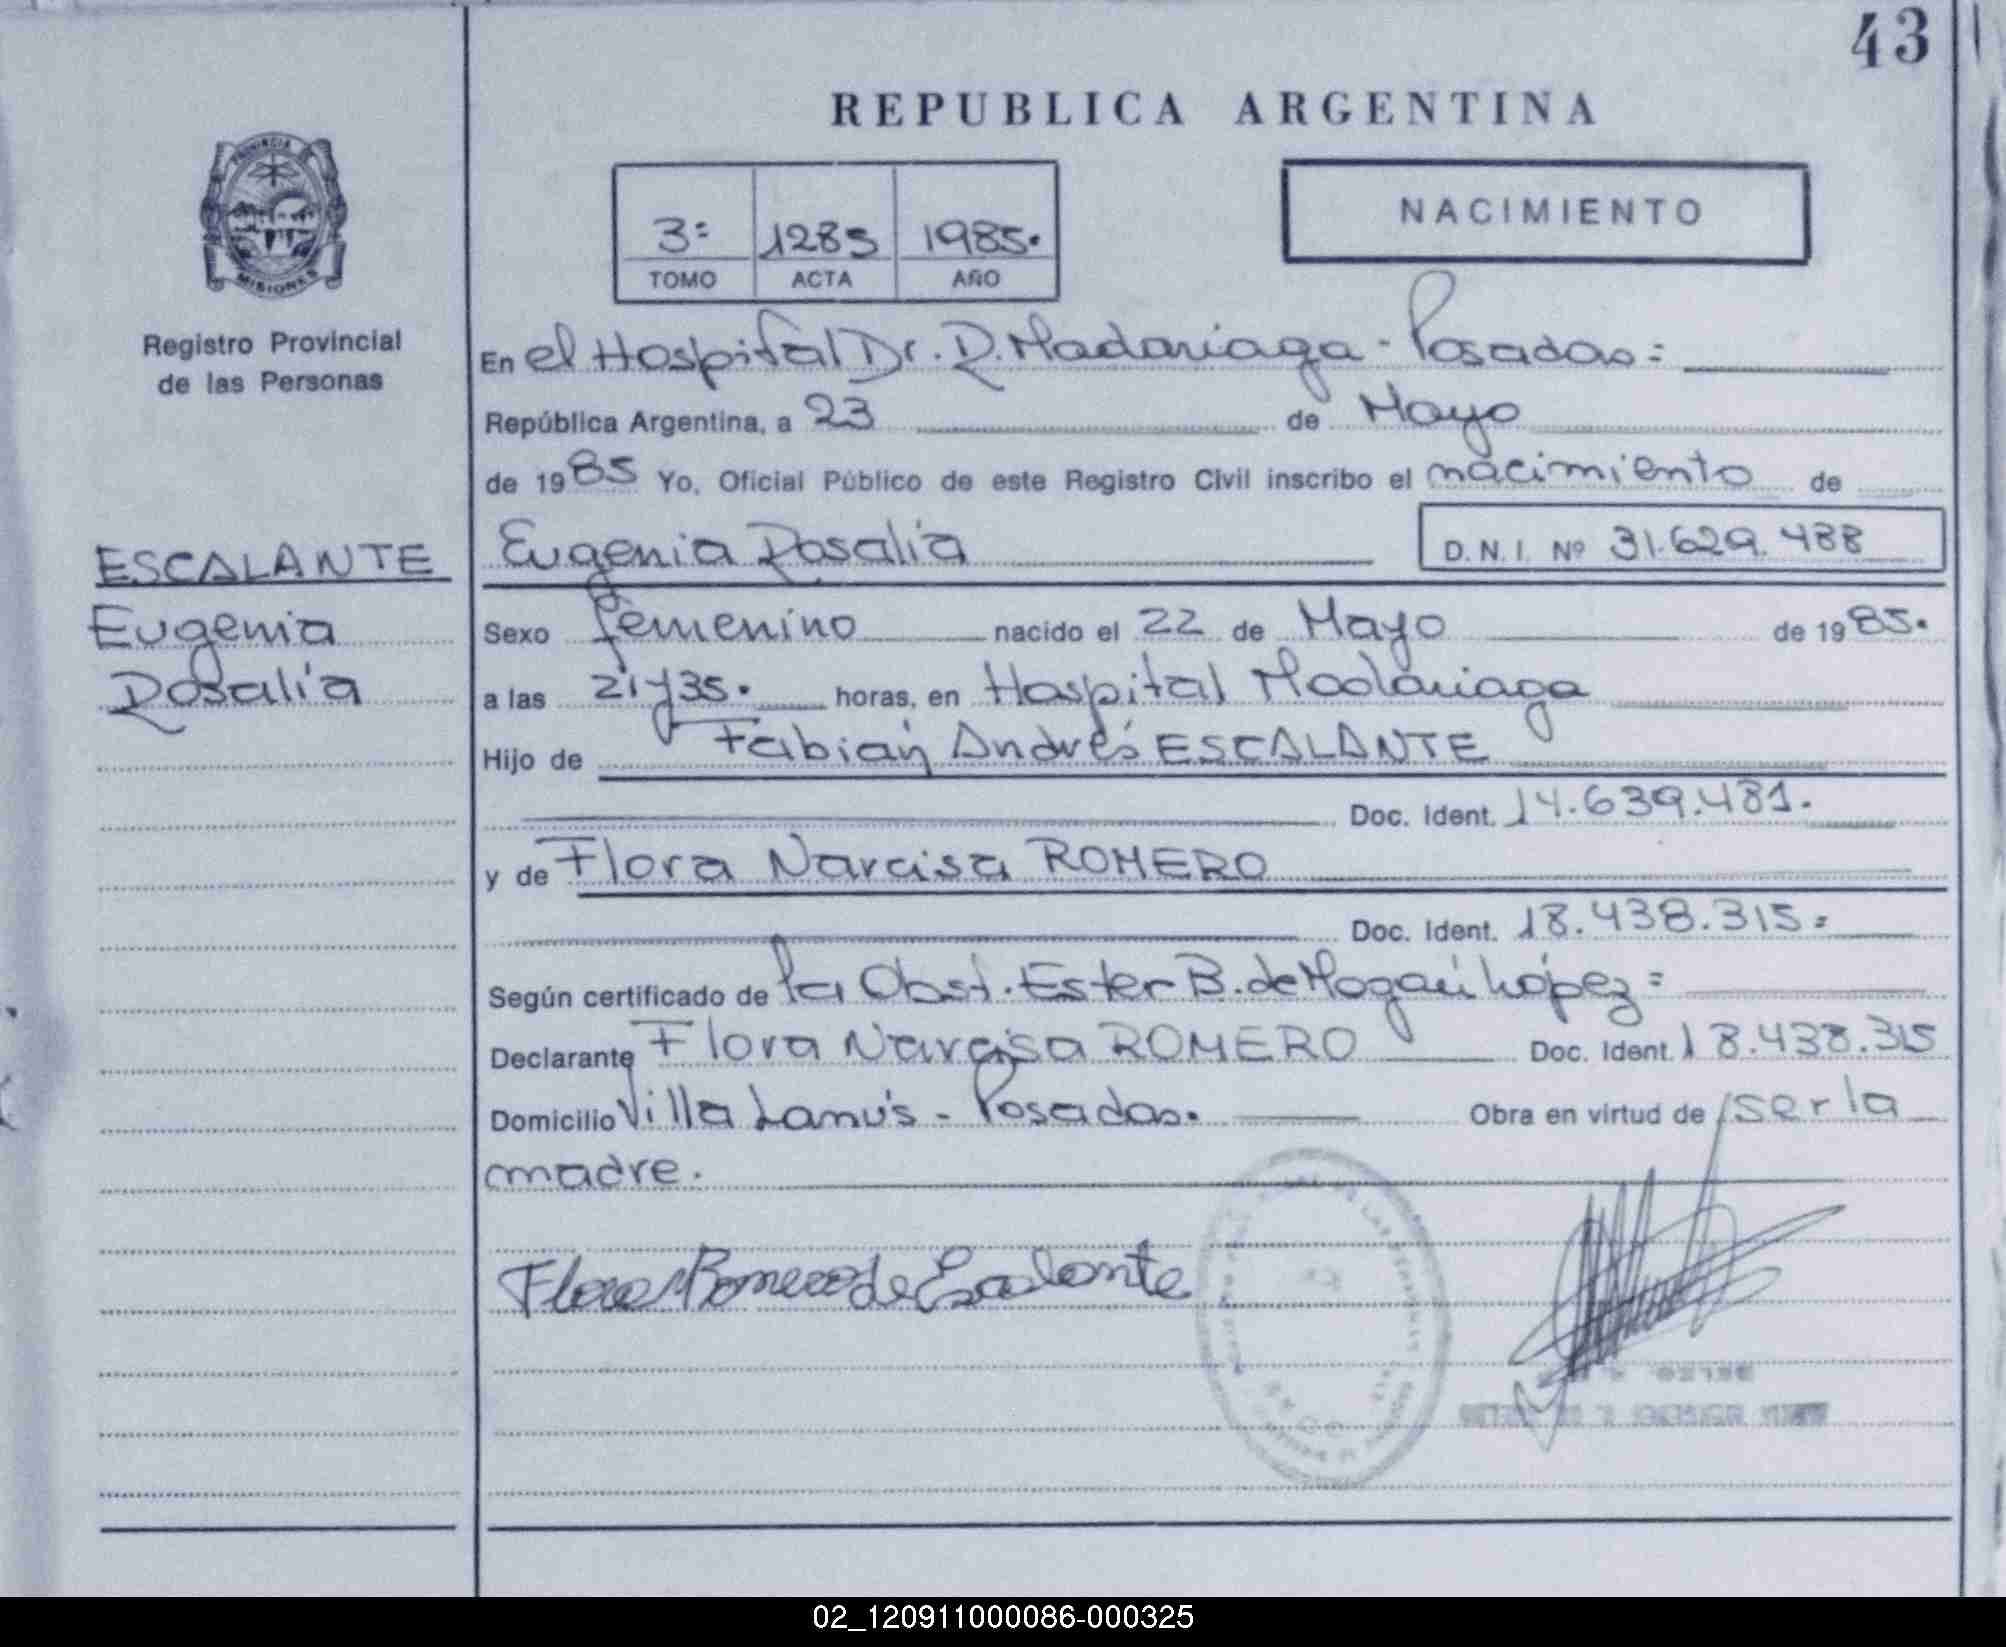 43
REPUBLICA ARGENTINA
PROVINCIA
MISIONES
Registro Provincial
de las Personas
3= 1285 1985.
TOMO ACTA AÑO
NACIMIENTO
En el Hospital Dr. R. Madariaga - Posadas=
República Argentina, a 23 de Mayo
de 1985 Yo, Oficial Público de este Registro Civil inscribo el nacimiento de
ESCALANTE
Eugenia
Rosalía
Eugenia Rosalía D.N.I. Nº 31.629.488
Sexo femenino nacido el 22 de Mayo de 1985.
a las 21y35. horas, en Hospital Madariaga
Hijo de Fabián Andrés ESCALANTE
Doc. Ident. 14.639.481.
y de Flora Narcisa ROMERO
Doc. Ident. 18.438.315=
Según certificado de la Obst. Ester B. de López=
Declarante Flora Narcisa ROMERO Doc. Ident. 18.438.315
Domicilio Villa Lanús - Posadas. Obra en virtud de ser la
madre.
Flora Romero de Escalante
02_120911000086-000325